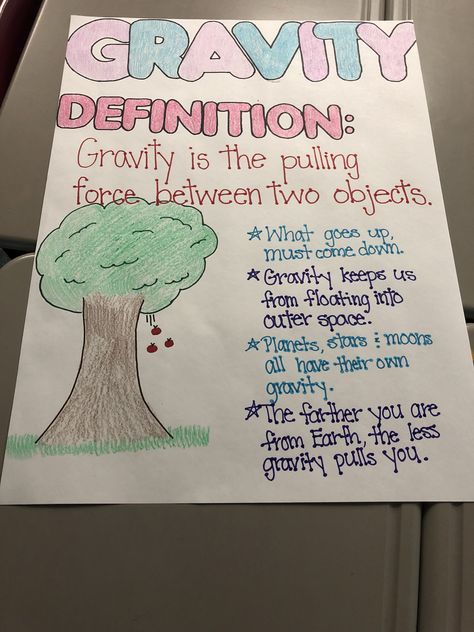 GRAVITY
DEFINITION:
Gravity is the pulling
force between two objects.
☆ What goes up,
must come down.
☆ Gravity keeps us
from floating into
outer space.
☆ Planets, stars & moons
all have their own
gravity.
☆ The farther you are
from Earth, the less
gravity pulls you.